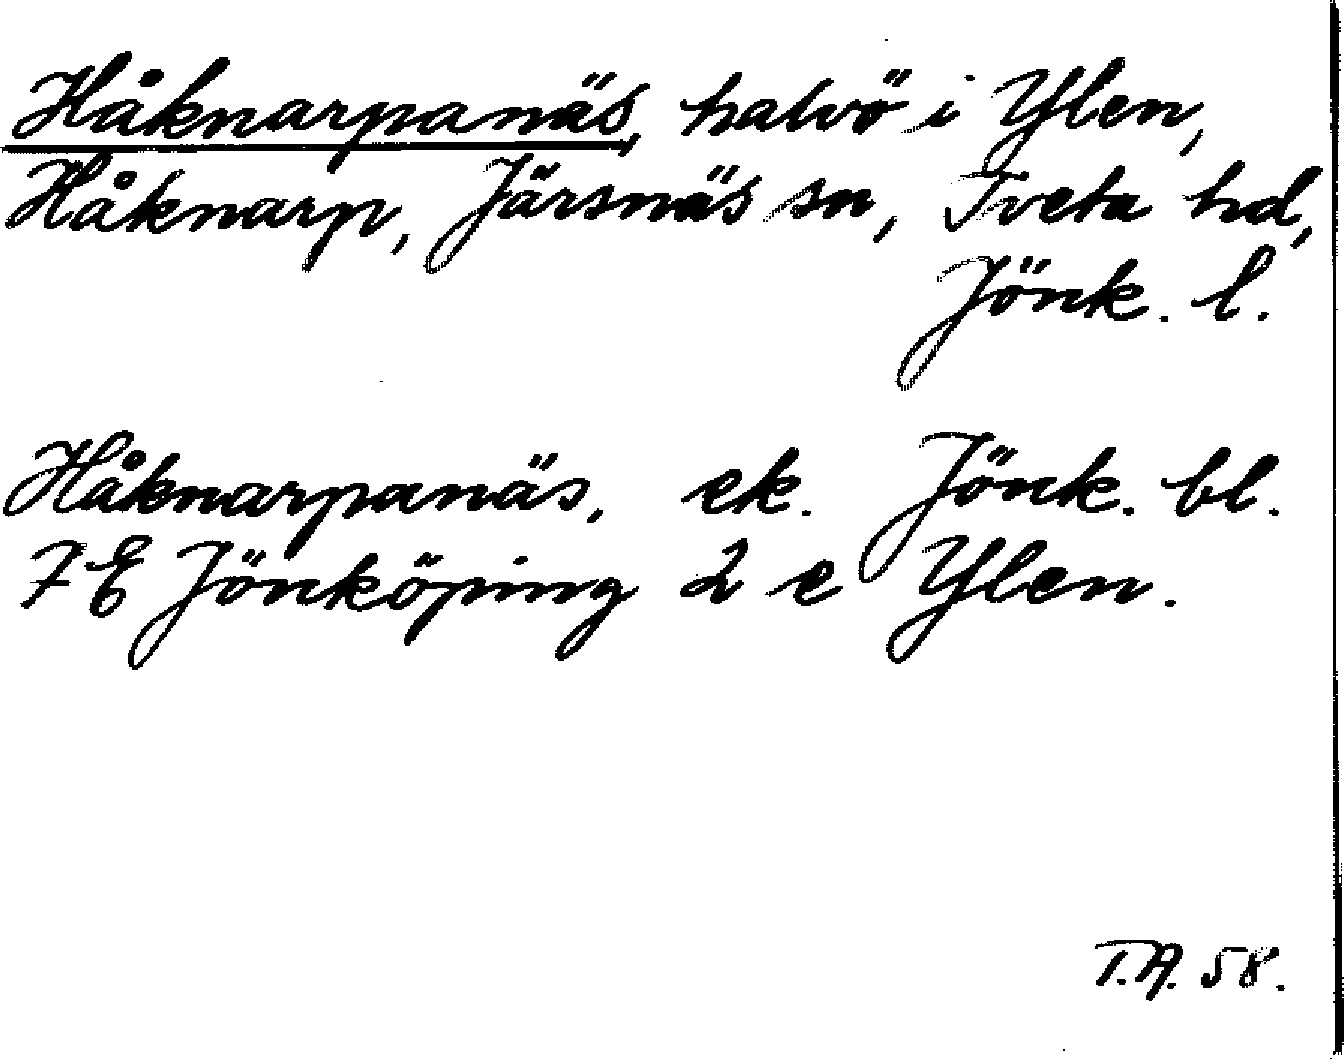 Håknarpanäs, halvö i Ylen,
Håknarp, Järsnäs sn, Tveta hd,
Jönk. l.
Håknarpanäs, ek. Jönk. bl.
7 E Jönköping 2 e Ylen.
T.A. 58.